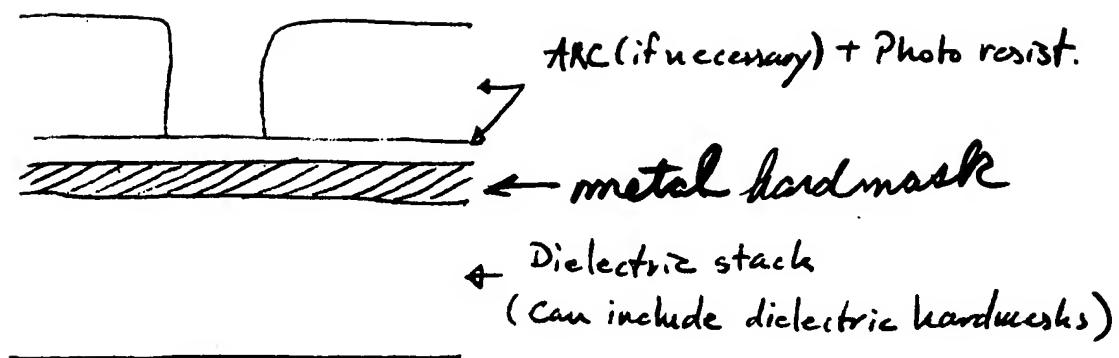 ARC (if necessary) + Photo resist.
metal hardmask
Dielectric stack
(can include dielectric hardmasks)